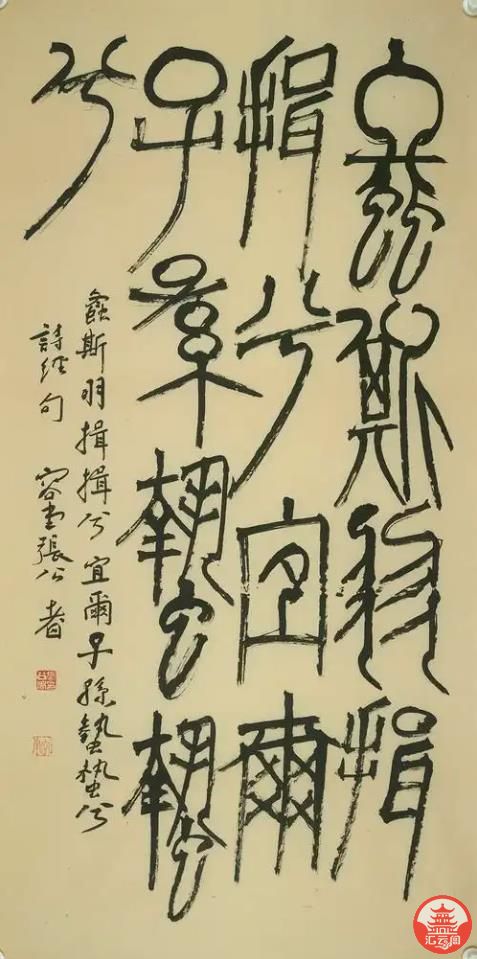 螽斯羽揖
揖兮宜爾
子孫蟄蟄
兮
螽斯羽揖揖兮宜爾子孫蟄蟄兮
詩經句 容堂張公者
汇云阁